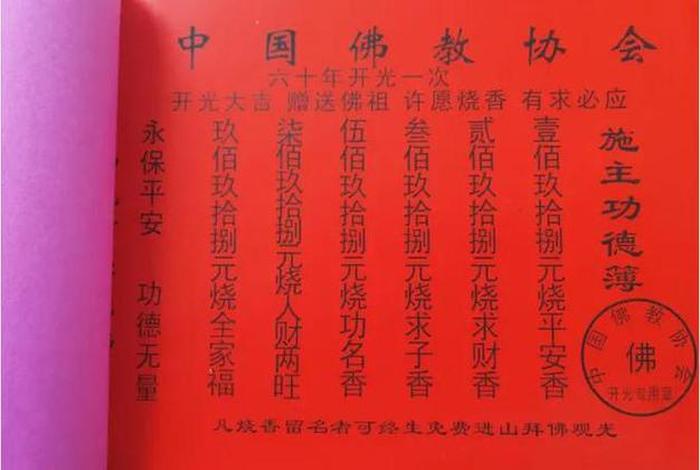 中国佛教协会
六十年开光一次
开光大吉 赠送佛祖 许愿烧香 有求必应
施主功德薄
壹佰玖拾捌元烧平安香
贰佰玖拾捌元烧求财香
叁佰玖拾捌元烧求子香
伍佰玖拾捌元烧功名香
柒佰玖拾捌元烧人财两旺
玖佰玖拾捌元烧全家福
永保平安 功德无量
中国佛教协会
佛
开光专用章
凡烧香留名者可终生免费进山拜佛观光